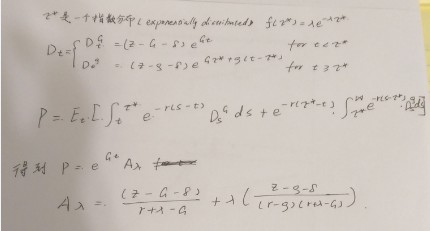 τ* 是一个指数分布 (exponentially distributed) f(τ*) = λe^{-λτ*}
D_t = { D_t^G = (z - G - δ) e^{Gt} for t < τ*
D_t^g = (z - g - δ) e^{Gτ* + g(t - τ*)} for t ≥ τ*
P = E_t [ ∫_t^{τ*} e^{-r(s-t)} D_s^G ds + e^{-r(τ*-t)} · ∫_{τ*}^{∞} e^{-r(s-τ*)} · D_s^g ds ]
得到 P = e^{Gt} A_λ
A_λ = (z - G - δ) / (r + λ - G) + λ ( (z - g - δ) / ((r - g)(r + λ - G)) ) .